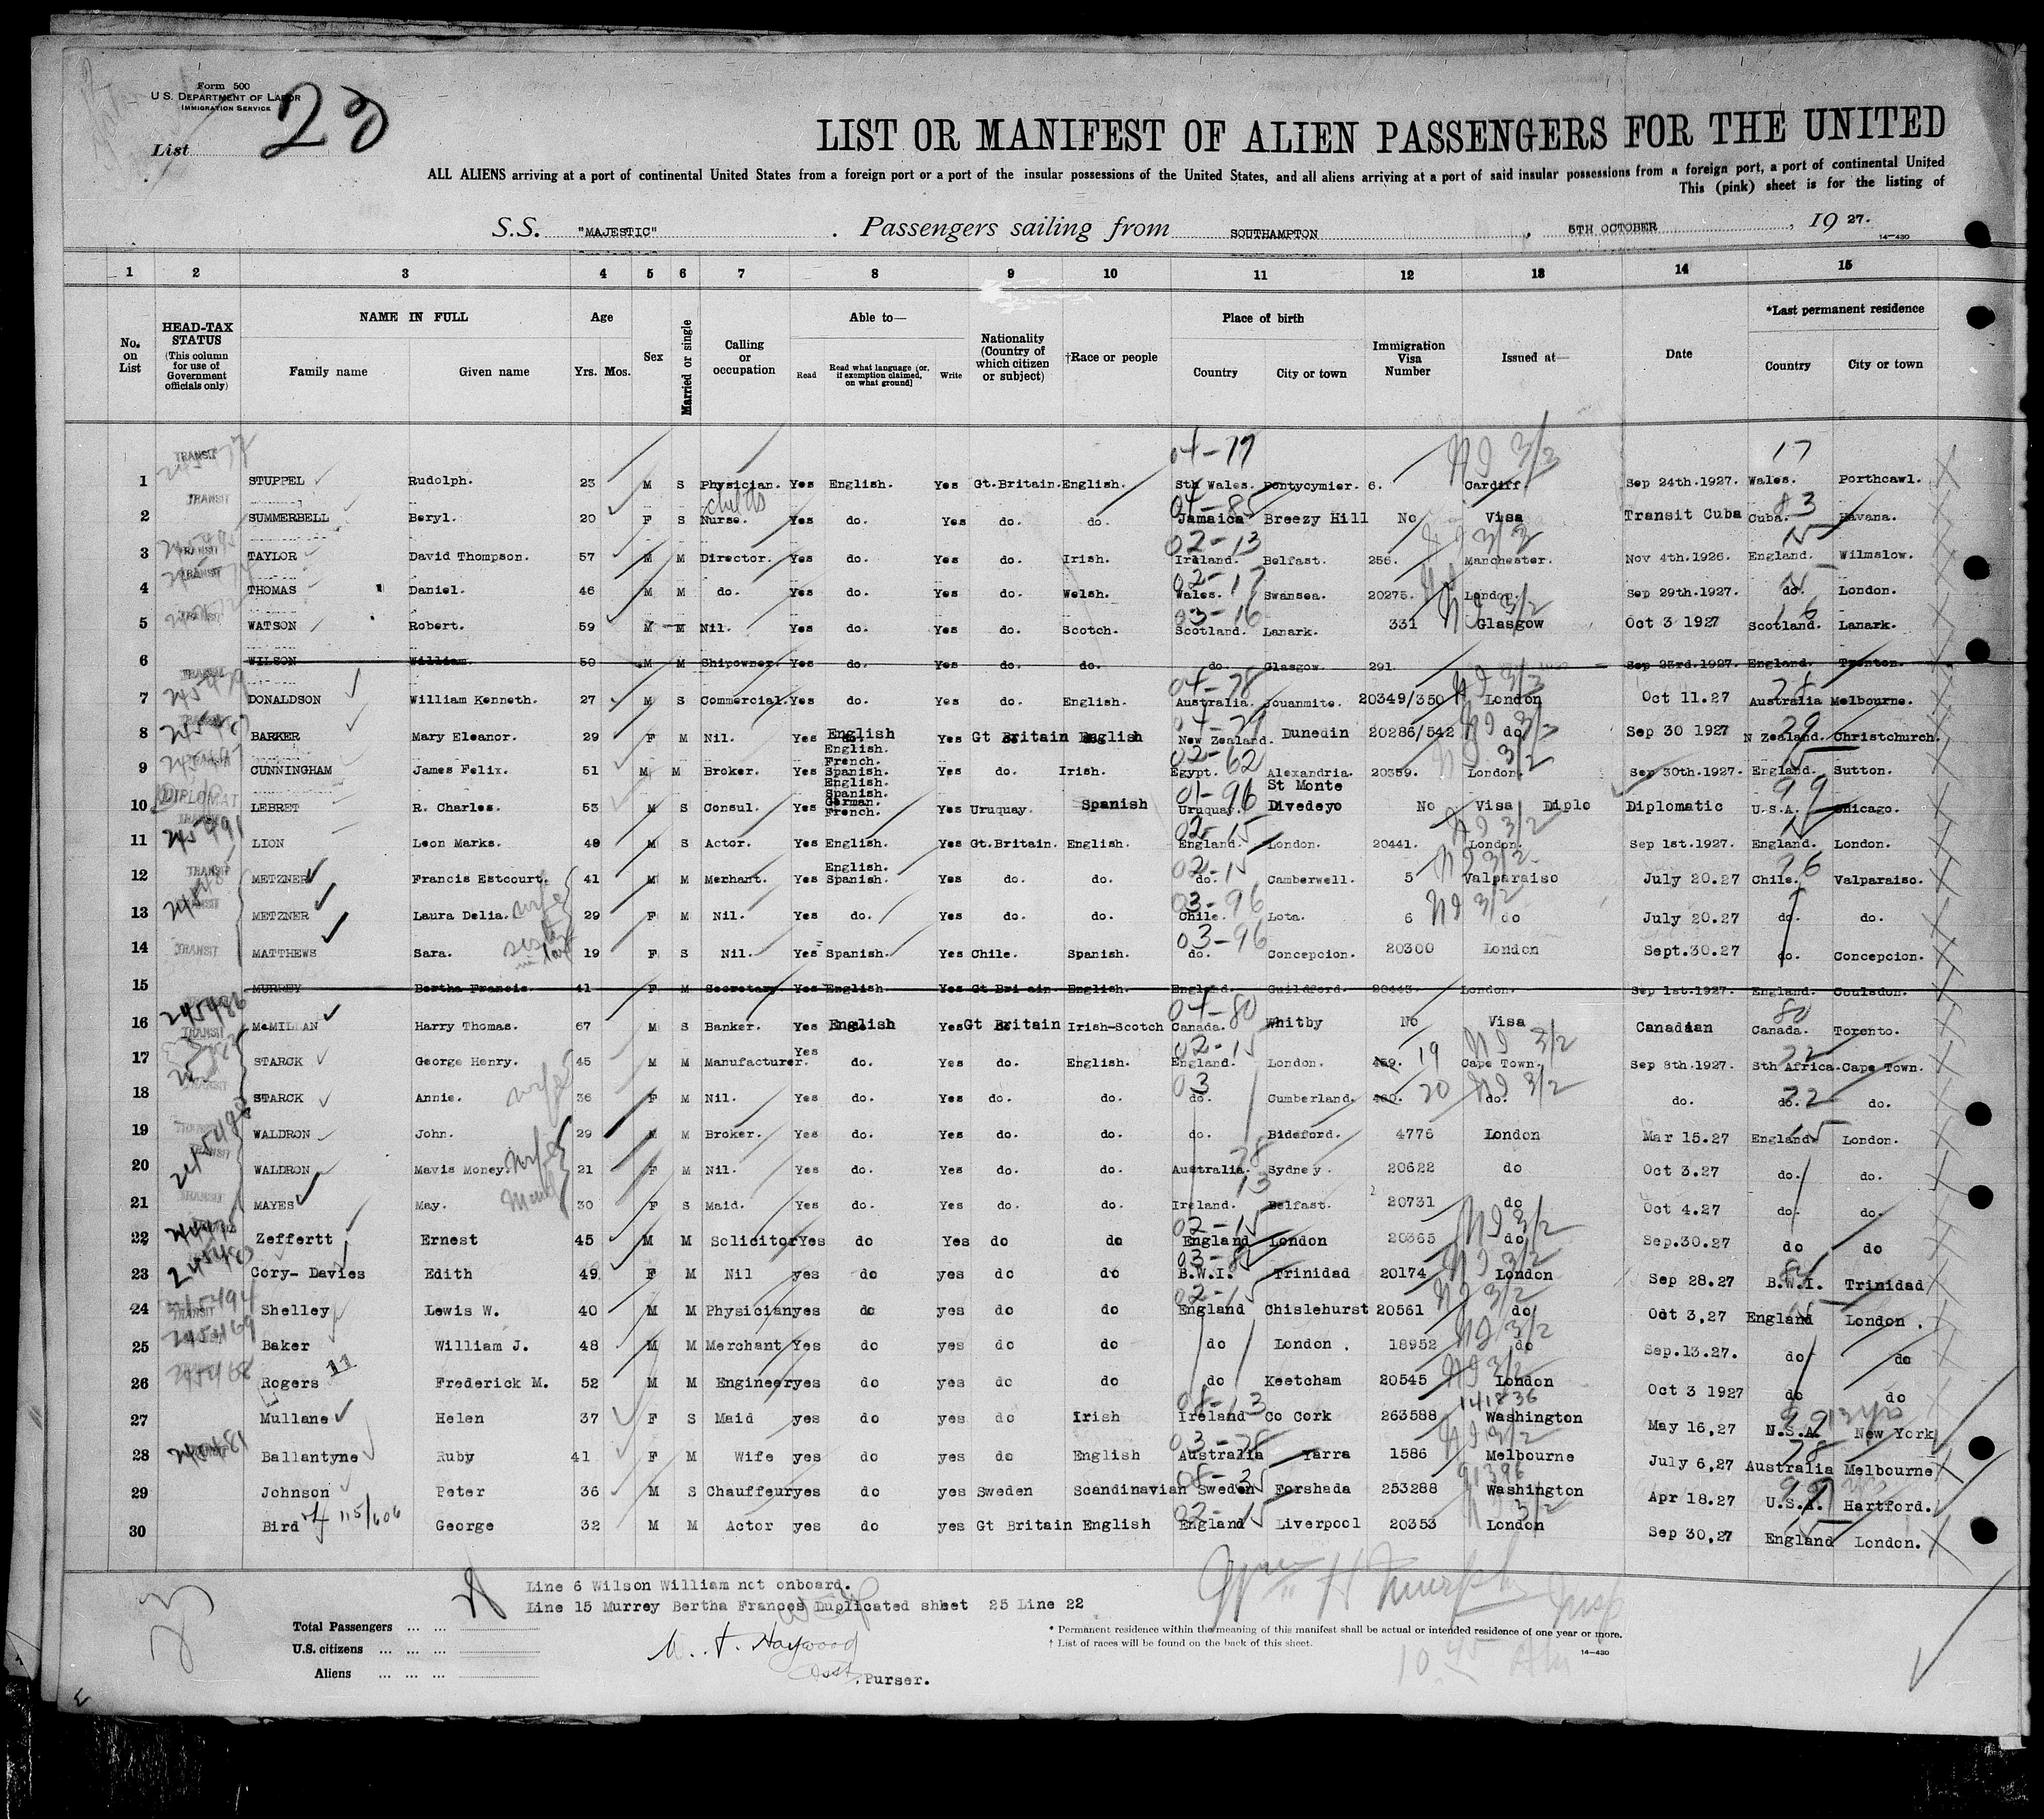 Form 500
U.S. DEPARTMENT OF LABOR
IMMIGRATION SERVICE
List 20
LIST OR MANIFEST OF ALIEN PASSENGERS FOR THE UNITED
ALL ALIENS arriving at a port of continental United States from a foreign port or a port of the insular possessions of the United States, and all aliens arriving at a port of said insular possessions from a foreign port, a port of continental United
This (pink) sheet is for the listing of
S.S. "MAJESTIC" . Passengers sailing from SOUTHAMPTON , 5TH OCTOBER , 19 27.
14-430
1 2 3 4 5 6 7 8 9 10 11 12 13 14 15
No. on List
HEAD-TAX STATUS (This column for use of Government officials only)
NAME IN FULL Family name Given name
Age Yrs. Mos.
Sex
Married or single
Calling or occupation
Able to— Read Read what language (or, if exemption claimed, on what ground) Write
Nationality (Country of which citizen or subject)
†Race or people
Place of birth Country City or town
Immigration Visa Number
Issued at—
Date
*Last permanent residence Country City or town
04-77 NI 3/3 17
1 TRANSIT STUPPEL Rudolph. 23 M S Physician. Yes English. Yes Gt.Britain. English. Sth Wales. Pontycymier. 6. Cardiff. Sep 24th.1927. Wales. Porthcawl.
childs 04-85 83
2 TRANSIT SUMMERBELL Beryl. 20 F S Nurse. Yes do. Yes do. do. Jamaica Breezy Hill No Visa Transit Cuba Cuba. Havana.
02-13 NI 3/3 15
3 TRANSIT TAYLOR David Thompson. 57 M M Director. Yes do. Yes do. Irish. Ireland. Belfast. 256. Manchester. Nov 4th.1926. England. Wilmslow.
02-17 15
4 TRANSIT THOMAS Daniel. 46 M M do. Yes do. Yes do. Welsh. Wales. Swansea. 20275. London. Sep 29th.1927. do. London.
03-16 NI 3/2 16
5 TRANSIT WATSON Robert. 59 M M Nil. Yes do. Yes do. Scotch. Scotland. Lanark. 331 Glasgow Oct 3 1927 Scotland. Lanark.
6 WILSON William. 50 M M Shipowner. Yes do. Yes do. do. do. Glasgow. 291. Sep 23rd.1927. England. Trenton.
04-78 NI 3/3 78
7 TRANSIT 245479 DONALDSON William Kenneth. 27 M S Commercial. Yes do. Yes do. English. Australia. Jouanmite. 20349/350 London Oct 11.27 Australia Melbourne.
04-79 NI 3/2 29
8 TRANSIT BARKER Mary Eleanor. 29 F M Nil. Yes English Yes Gt Britain English New Zealand. Dunedin 20286/542 do Sep 30 1927 N Zealand. Christchurch.
02-62 NI 3/2 15
9 TRANSIT CUNNINGHAM James Felix. 51 M M Broker. Yes English. French. Spanish. Yes do. Irish. Egypt. Alexandria. 20359. London. Sep 30th.1927. England. Sutton.
01-96 99
10 DIPLOMAT LEBRET R. Charles. 53 M S Consul. Yes English. Spanish. German. French. Yes Uruquay. Spanish Uruquay. St Monte Divedeyo No Visa Diplo Diplomatic U.S.A. Chicago.
02-15 NI 3/2 15
11 TRANSIT 245491 LION Leon Marks. 49 M S Actor. Yes English. Yes Gt.Britain. English. England. London. 20441. London. Sep 1st.1927. England. London.
02-15 NI 3/2 76
12 TRANSIT METZNER Francis Estcourt. 41 M M Merhant. Yes English. Spanish. Yes do. do. do. Camberwell. 5 Valparaiso July 20.27 Chile. Valparaiso.
03-96 NI 3/2
13 TRANSIT METZNER Laura Delia. wife 29 F M Nil. Yes do. Yes do. do. Chile. Lota. 6 do July 20.27 do. do.
03-96
14 TRANSIT MATTHEWS Sara. sister in law 19 F S Nil. Yes Spanish. Yes Chile. Spanish. do. Concepcion. 20300 London Sept.30.27 do. Concepcion.
15 MURREY Bertha Francis. 41 F M Secretary. Yes English. Yes Gt Bri ain. English. England. Guildford. 20443. London. Sep 1st.1927. England. Coulsdon.
04-80 80
16 245486 TRANSIT McMILLAN Harry Thomas. 67 M S Banker. Yes English Yes Gt Britain Irish-Scotch Canada. Whitby No Visa Canadian Canada. Toronto.
02-15 19 NI 3/2 22
17 STARCK George Henry. 45 M M Manufacturer. Yes do. Yes do. English. England. London. 459. Cape Town. Sep 8th.1927. Sth Africa. Cape Town.
03 20 NI 3/2 22
18 TRANSIT STARCK Annie. wife 36 F M Nil. Yes do. Yes do. do. do. Cumberland. 460. do. do. do. do.
15
19 WALDRON John. 29 M M Broker. Yes do. Yes do. do. do. Bideford. 4776 London Mar 15.27 England. London.
78
20 TRANSIT WALDRON Mavis Money. wife 21 F M Nil. Yes do. Yes do. do. Australia. Sydney. 20622 do Oct 3.27 do. do.
13
21 TRANSIT MAYES May. Maid 30 F S Maid. Yes do. Yes do. do. Ireland. Belfast. 20731 do Oct 4.27 do. do.
02-15 NI 3/2
22 Zeffertt Ernest 45 M M Solicitor Yes do Yes do do England London 20365 do Sep.30.27 do do
NI 3/2
23 245483 Cory- Davies Edith 49 F M Nil yes do yes do do B.W.I. Trinidad 20174 London Sep 28.27 B.W.I. Trinidad
02-15 NI 3/2 15
24 245494 TRANSIT Shelley Lewis W. 40 M M Physician yes do yes do do England Chislehurst 20561 do Oct 3,27 England London .
NI 3/2
25 245469 Baker William J. 48 M M Merchant Yes do yes do do do London . 18952 do Sep.13.27. do do
NI 3/2
26 245468 Rogers 11 Frederick M. 52 M M Engineer yes do yes do do do Keetcham 20545 London Oct 3 1927 do do
08-13 141836 99
27 Mullane Helen 37 F S Maid yes do yes do Irish Ireland Co Cork 263588 Washington May 16,27 N.S.A. New York
03-78 NI 3/2 78
28 Ballantyne Ruby 41 F M Wife yes do yes do English Australia Yarra 1586 Melbourne July 6,27 Australia Melbourne
08-35 91396 99
29 Johnson Peter 36 M S Chauffeur yes do yes Sweden Scandinavian Sweden Forshada 253288 Washington Apr 18.27 U.S.A. Hartford.
02-15 3/2 15
30 Bird 115/606 George 32 M M Actor yes do yes Gt Britain English England Liverpool 20353 London Sep 30,27 England London.
Line 6 Wilson William not onboard.
Line 15 Murrey Bertha Frances Duplicated sheet 25 Line 22
Total Passengers ... ...
U.S. citizens ... ... ...
Aliens ... ... ...
Haywood
Asst. Purser.
H Murphy Insp
10 45 AM
* Permanent residence within the meaning of this manifest shall be actual or intended residence of one year or more.
† List of races will be found on the back of this sheet.
14-430